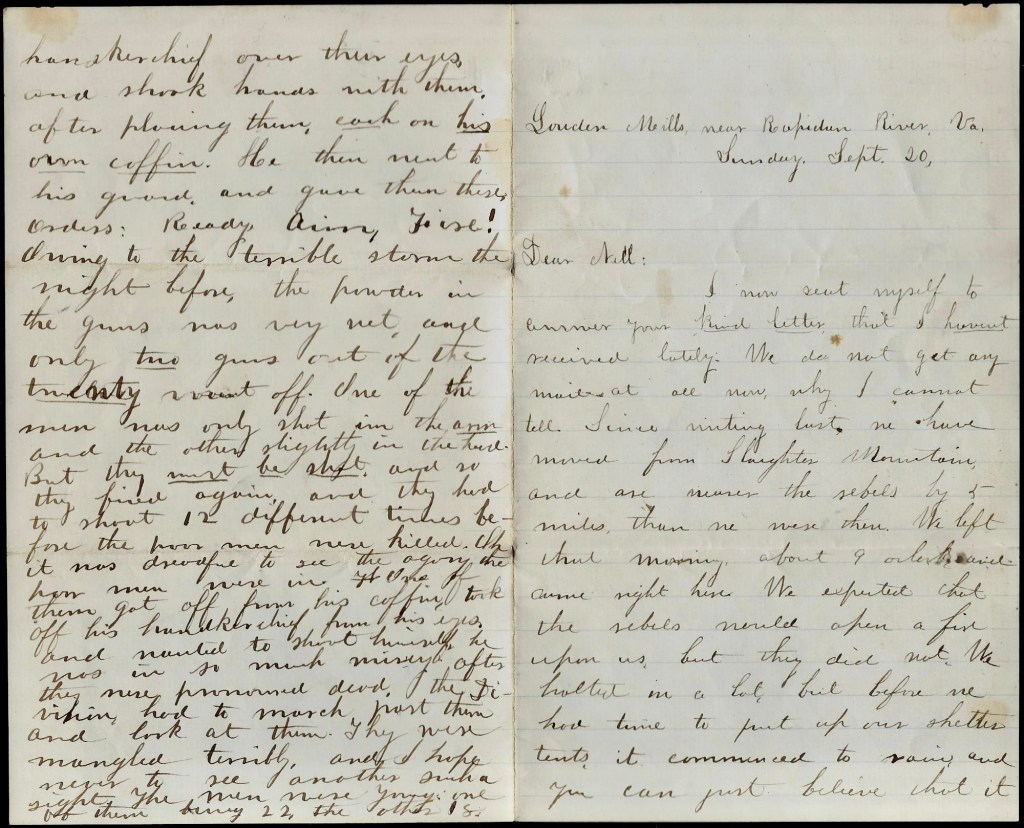 Louden Mills, near Rapidan River, Va.
Sunday. Sept. 20,
Dear Nell:
I now seat myself to
answer your kind letter, that I havent
received lately. We do not get any
mails at all now, why I cannot
tell. Since writing last, we have
moved from Slaughter Mountain,
and are nearer the rebels by 5
miles, than we were then. We left
that morning, about 9 oclock and
came right here. We expected that
the rebels would open a fire
upon us, but they did not. We
halted in a lot, but before we
had time to put up our shelter
tents, it commenced to rain, and
you can just believe that it
hankerchief over their eyes,
and shook hands with them,
after placing them, each on his
own coffin. He then went to
his guard, and gave them these
orders: Ready, Aim, Fire!
Owing to the terrible storm the
night before, the powder in
the guns was very wet, and
only two guns out of the
twenty went off. One of the
men was only shot in the arm
and the other slightly in the head.
But they must be shot, and so
they fired again, and they had
to shoot 12 different times be-
fore the poor men were killed. Oh
it was dreadful to see the agony the
poor men were in. One of
them got off from his coffin, took
off his handkerchief from his eyes,
and wanted to shoot himself, he
was in so much misery, after
they were pronounced dead, the Di-
vision, had to march past them
and look at them. They were
mangled terribly, and I hope
never to see another such a
sight. The men were young: one
of them being 22, the other 18.